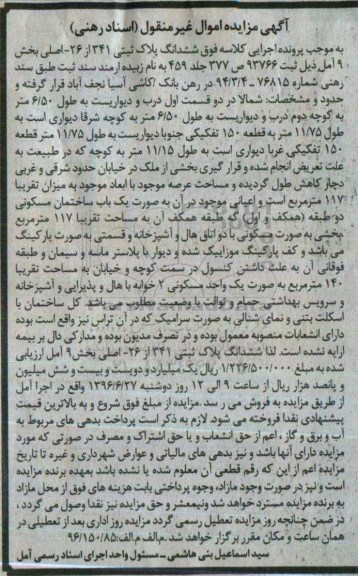 آگهی مزایده اموال غیر منقول (اسناد رهنی)
به موجب پرونده اجرایی کلاسه فوق ششدانگ پلاک ثبتی ۳۴۱ از ۲۶-اصلی بخش
۹ آمل ذیل ثبت ۹۳۷۶۶ ص ۳۷۷ جلد ۴۵۹ به نام زبیده ارمند سند ثبت طبق سند
رهنی شماره ۷۶۸۱۵ - ۹۴/۳/۴ در رهن بانک /کاشی آسیا نجف آباد قرار گرفته و
حدود و مشخصات: شمالا در دو قسمت اول درب و دیواریست به طول ۶/۵۰ متر
به کوچه دوم درب و دیواریست به طول ۶/۵۰ متر به کوچه شرقا دیواری است به
طول ۱۱/۷۵ متر به قطعه ۱۵۰ تفکیکی جنوبا دیواریست به طول ۱۱/۷۵ متر قطعه
۱۵۰ تفکیکی غربا دیواری است به طول ۱۱/۱۵ متر به کوچه که در طبیعت به
علت تعریض انجام شده و قرار گیری بخشی از ملک در خیابان حدود شرقی و غربی
دچار کاهش طول گردیده و مساحت عرصه موجود با ابعاد موجود به میزان تقریبا
۱۱۷ مترمربع است و اعیانی موجود در آن به صورت یک باب ساختمان مسکونی
دو طبقه (همکف و اول) که طبقه همکف آن به مساحت تقریبا ۱۱۷ مترمربع
بخشی به صورت مسکونی با دو اتاق هال و آشپزخانه و قسمتی به صورت پارکینگ
می باشد و کف پارکینگ موزاییک شده و دیوار با پلاستر ماسه و سیمان و طبقه
فوقانی آن به علت داشتن کنسول در سمت کوچه و خیابان به مساحت تقریبا
۱۴۰ مترمربع به صورت یک واحد مسکونی ۲ خوابه با هال و پذیرایی و آشپزخانه
و سرویس بهداشتی حمام و توالت با وضعیت مطلوب می باشد. کل ساختمان با
اسکلت بتنی و نمای شنالی به صورت سرامیک که در آن تراس نیز واقع است بوده
دارای انشعابات منصوبه معمول بوده و در تصرف مدیون بوده و مدارکی دال بر بیمه
ارایه نشده است. لذا ششدانگ پلاک ثبتی ۳۴۱ از ۲۶- اصلی بخش۹ آمل ارزیابی
شده به مبلغ ۱/۲۲۶/۵۰۰/۰۰۰ ریال یک میلیارد و دویست و بیست و شش میلیون
و پانصد هزار ریال از ساعت ۹ الی ۱۲ روز دوشنبه ۱۳۹۶/۶/۲۷ واقع در اجرا آمل
از طریق مزایده به فروش می ر سد .مزایده از مبلغ فوق شروع و به بالاترین قیمت
پیشنهادی نقدا فروخته می شود. لازم به ذکر است پرداخت بدهی های مربوط به
آب و برق و گاز ، اعم از حق انشعاب و یا حق اشتراک و مصرف در صورتی که مورد
مزایده دارای آنها باشد و نیز بدهی های مالیاتی و عوارض شهرداری و غیره تا تاریخ
مزایده اعم از این که رقم قطعی آن معلوم شده یا نشده باشد بعهده برنده مزایده
است و نیز در صورت وجود مازاد، وجوه پرداختی بابت هزینه های فوق از محل مازاد
به برنده مزایده مسترد خواهد شد ونیمعشر و حق مزایده نیز نقدا وصول می گردد ،
در ضمن چنانچه روز مزایده تعطیل رسمی گردد مزایده روز اداری بعد از تعطیلی در
همان ساعت و مکان مقرر برگزار خواهد شد.م.الف م.الف:۹۶/۱۵۰/۸۵
سید اسماعیل بنی هاشمی - مسئول واحد اجرای اسناد رسمی آمل